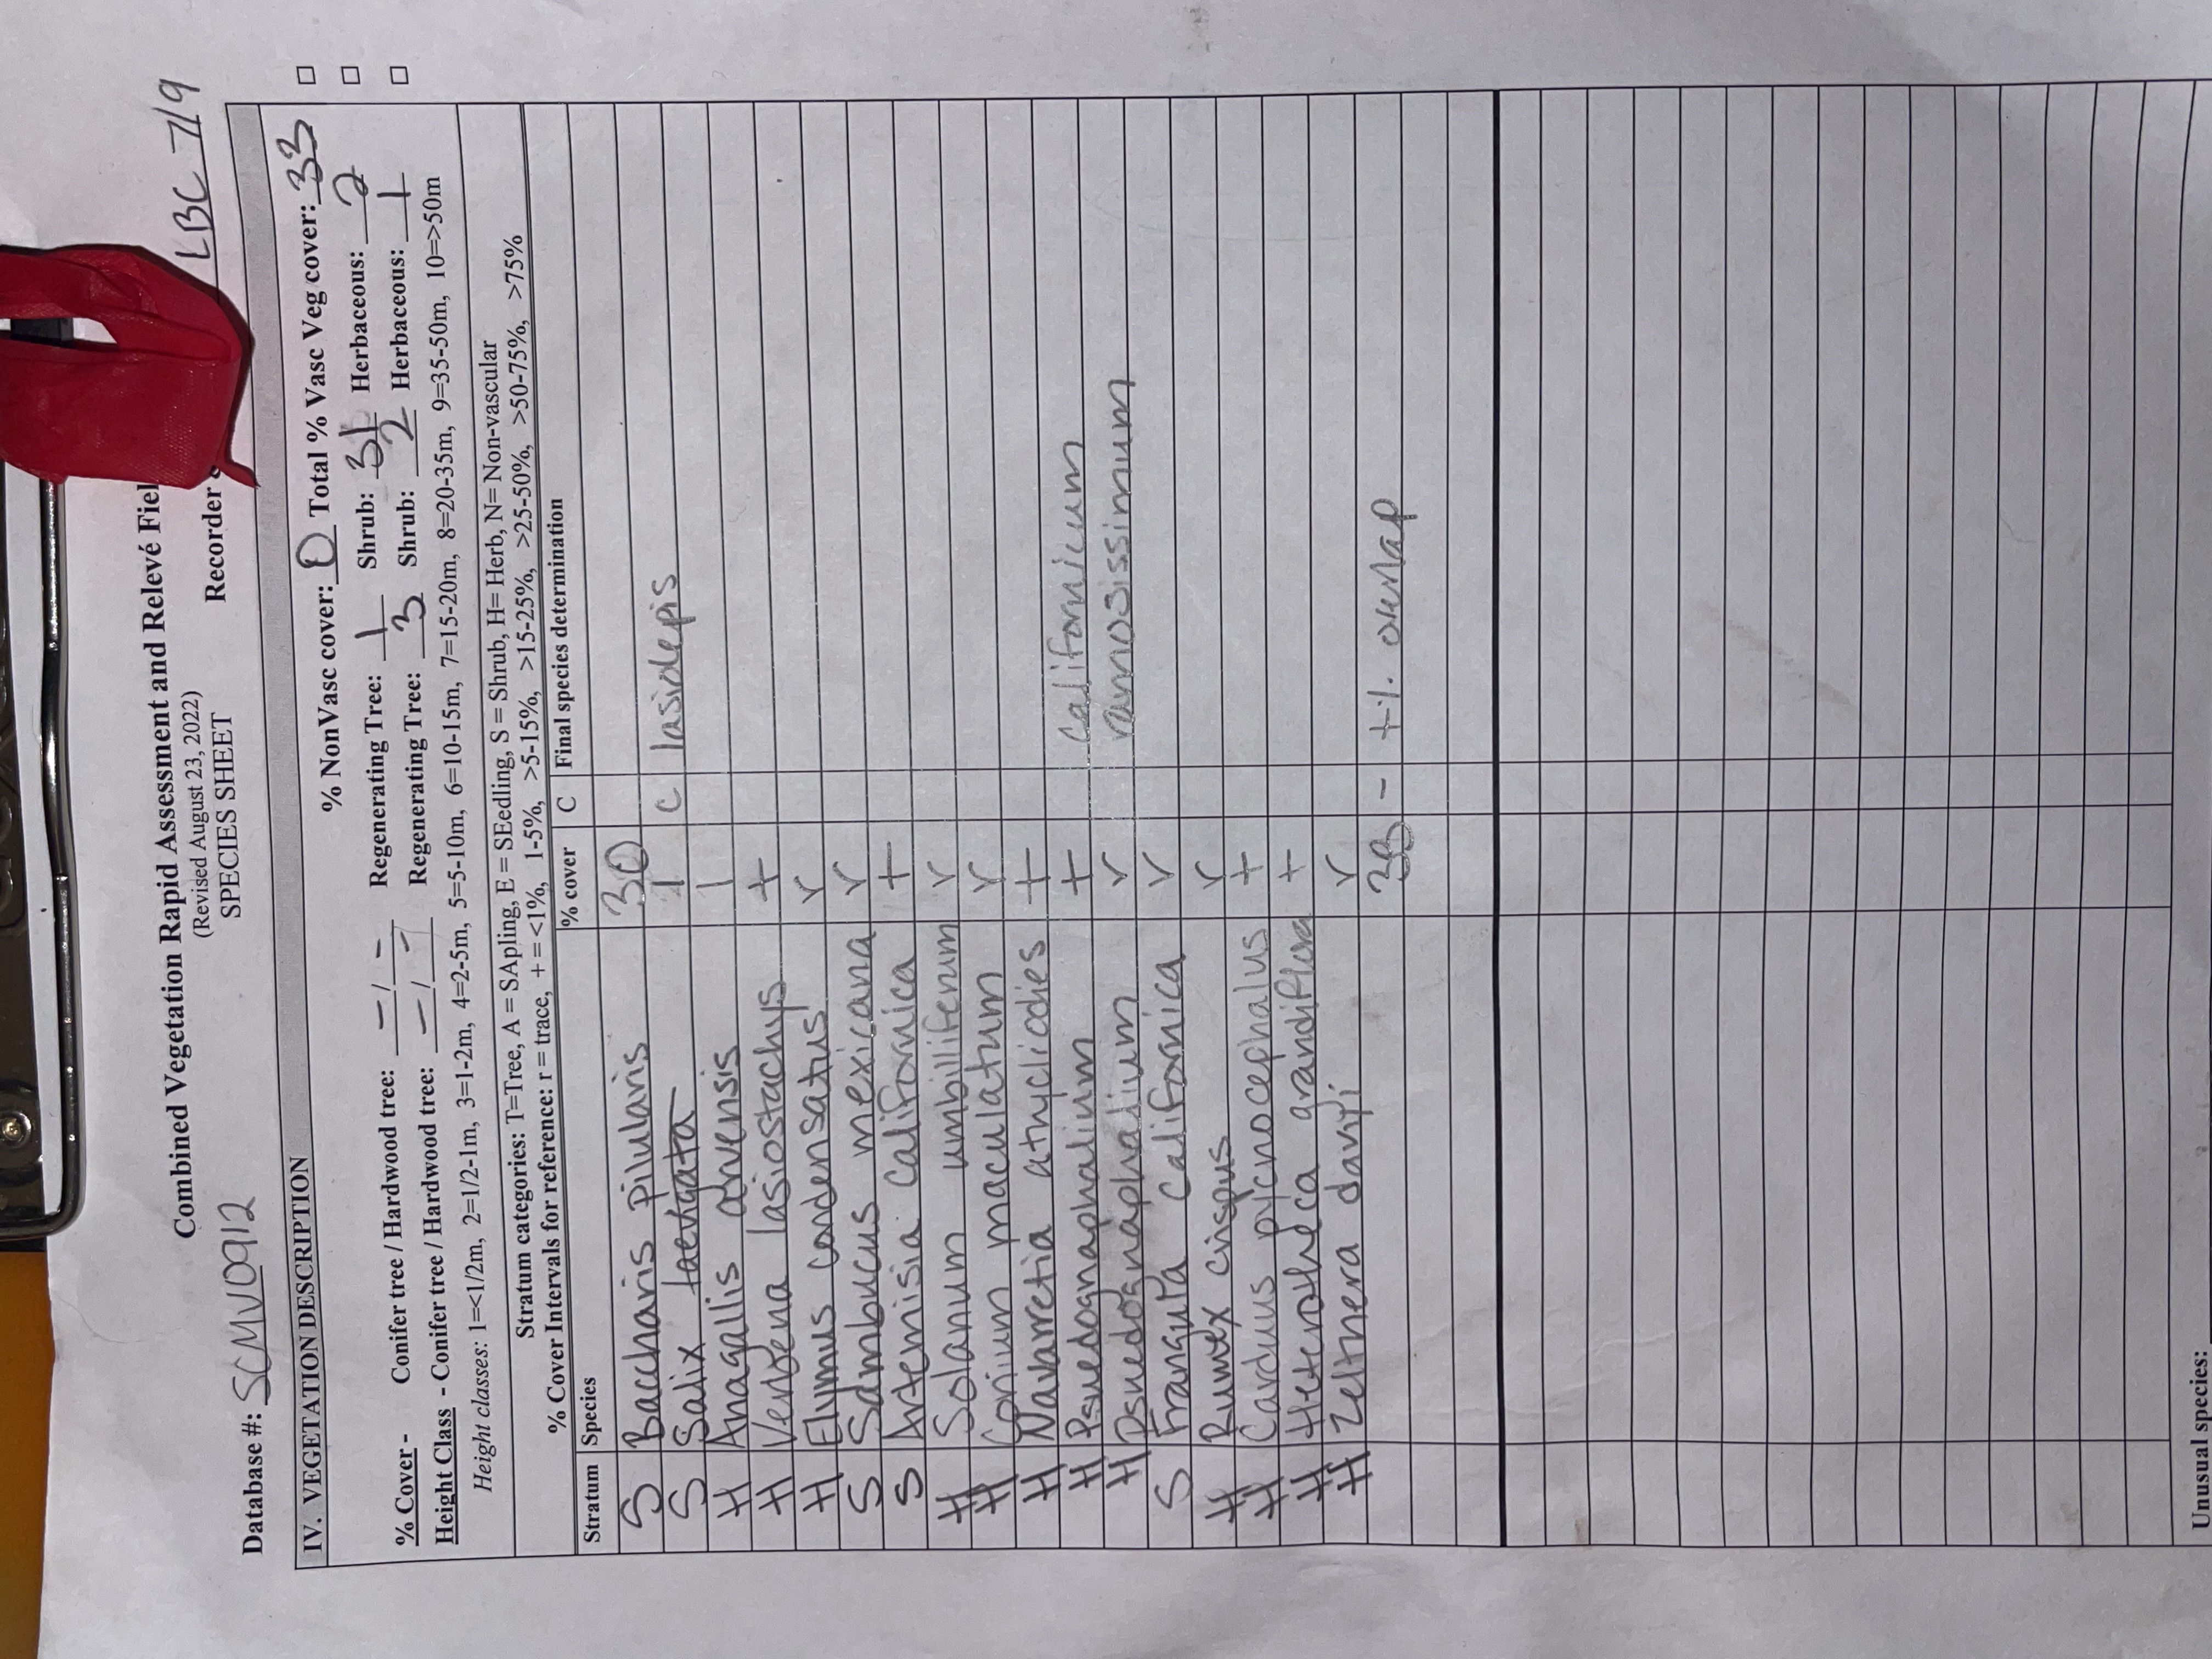 Combined Vegetation Rapid Assessment and Relevé Fiel
(Revised August 23, 2022)
SPECIES SHEET
Database #: SCMV0912 Recorder LBC 7/9
IV. VEGETATION DESCRIPTION
% NonVasc cover: 0 Total % Vasc Veg cover: 33 □
% Cover - Conifer tree / Hardwood tree: - / - Regenerating Tree: 1 Shrub: 31 Herbaceous: 2 □
Height Class - Conifer tree / Hardwood tree: - / - Regenerating Tree: 3 Shrub: 2 Herbaceous: 1 □
Height classes: 1=<1/2m, 2=1/2-1m, 3=1-2m, 4=2-5m, 5=5-10m, 6=10-15m, 7=15-20m, 8=20-35m, 9=35-50m, 10=>50m
Stratum categories: T=Tree, A = SApling, E = SEedling, S = Shrub, H= Herb, N= Non-vascular
% Cover Intervals for reference: r = trace, + = <1%, 1-5%, >5-15%, >15-25%, >25-50%, >50-75%, >75%
Stratum Species % cover C Final species determination
S Baccharis pilularis 30
S Salix laevigata 1 C lasiolepis
H Anagallis arvensis 1
H Verbena lasiostachys +
H Elymus condensatus r
S Sambucus mexicana r
S Artemisia californica +
H Solanum umbilliferum r
H Conium maculatum r
H Navarretia atryclicodies +
H Psuedognaphalinum + californicum
H Psuedognaphalium r ramosissimum
S Frangula californica r
H Rumex crispus r
H Carduus pycnocephalus +
H Heterotheca grandiflora +
H Zeltnera davyi r
33 - +% overlap
Unusual species: